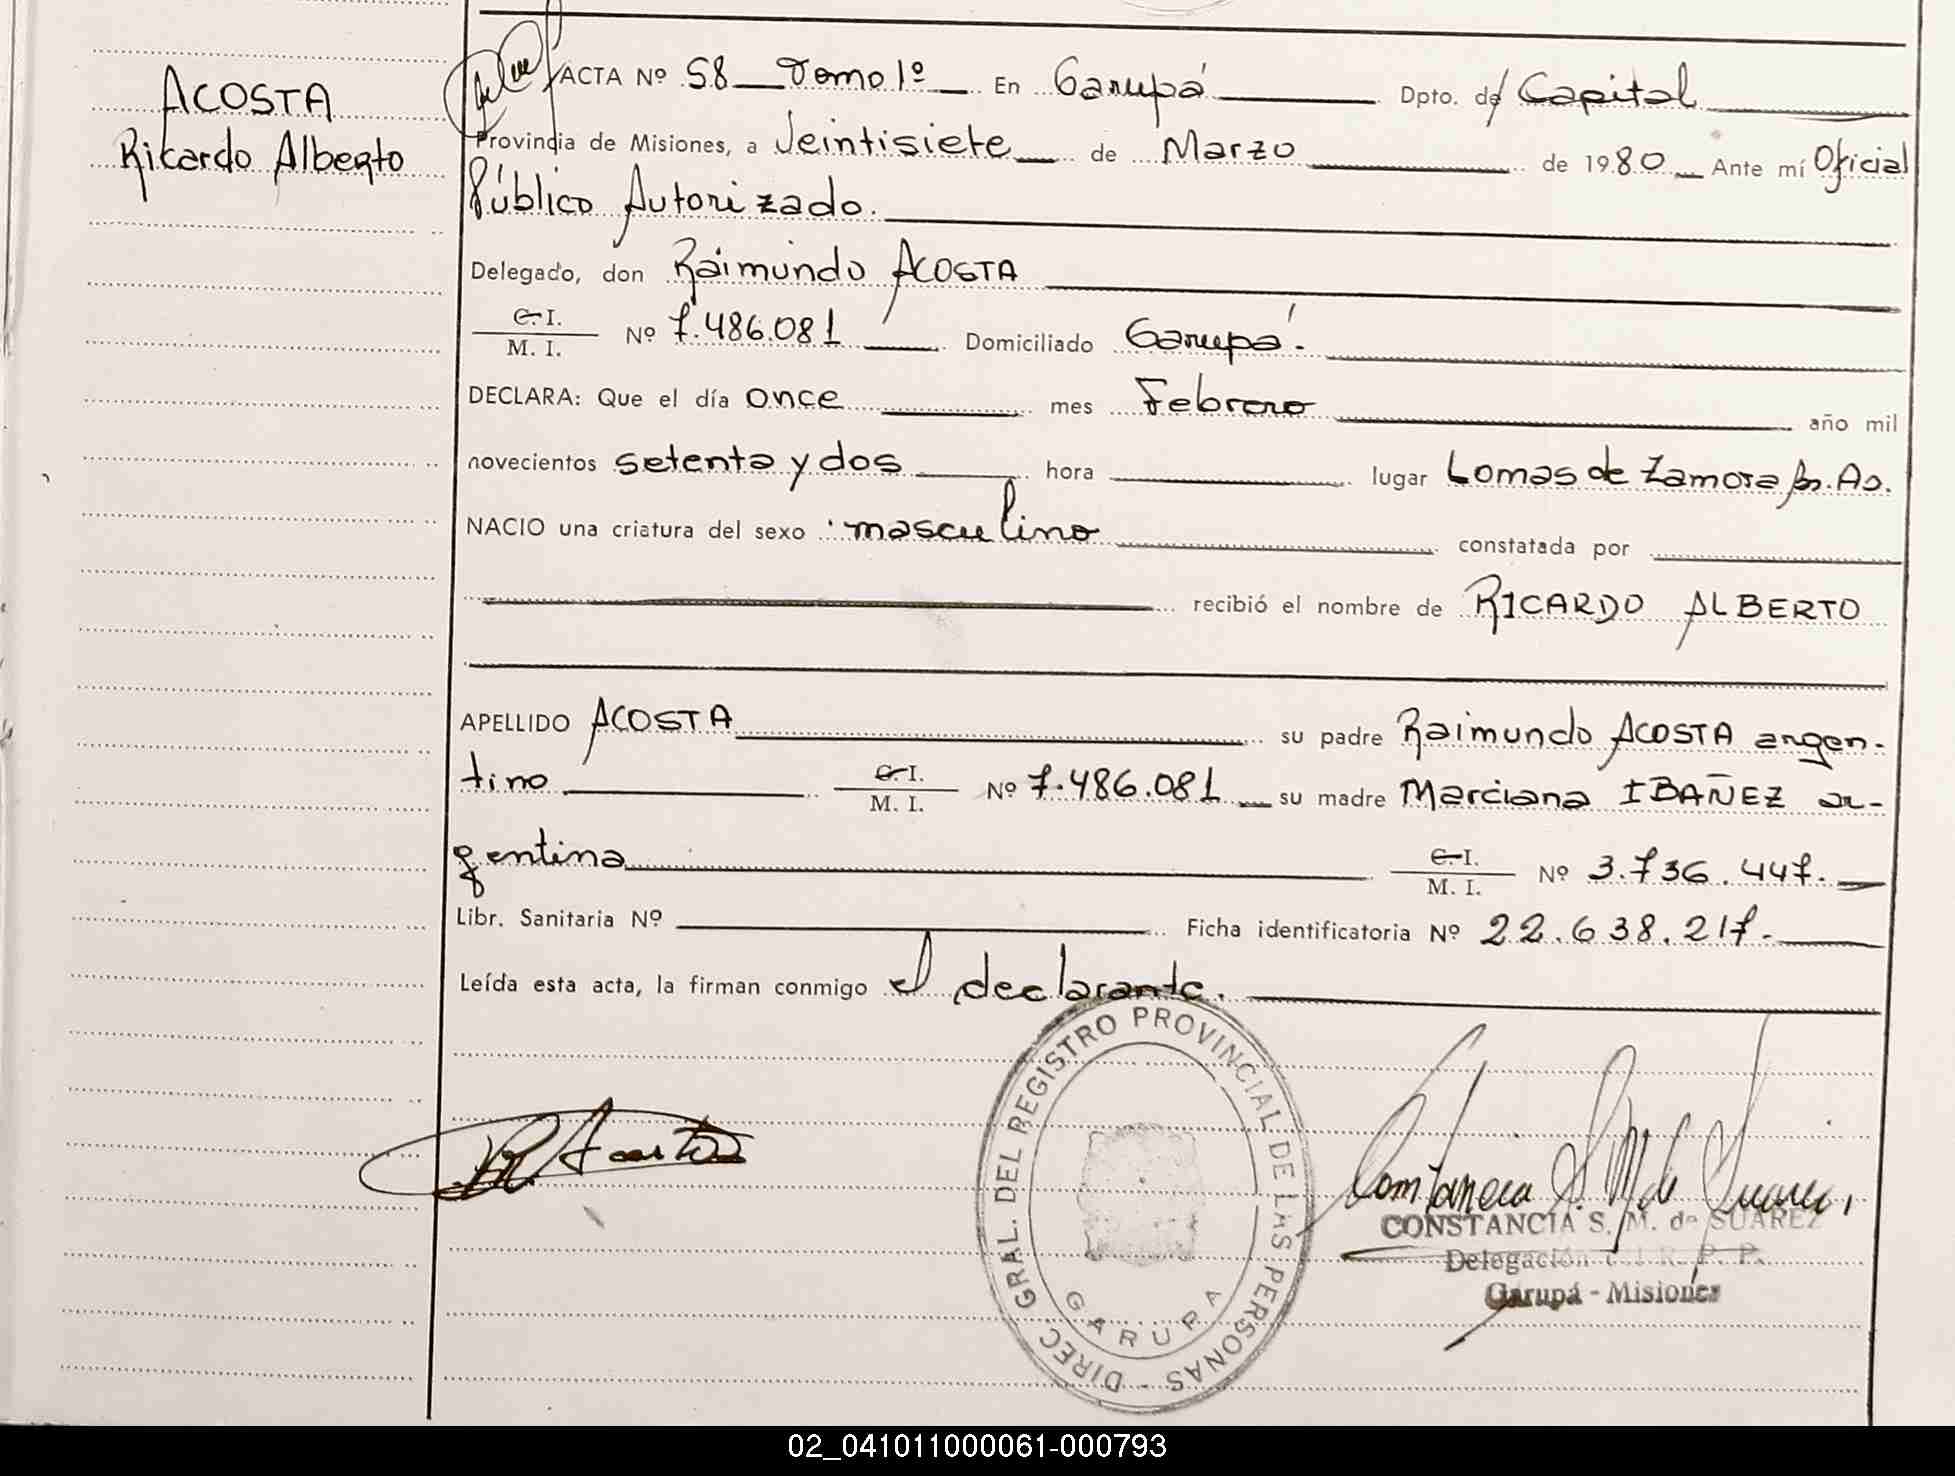 ACOSTA
Ricardo Alberto
ACTA Nº 58 Tomo 1º En Garupá Dpto. de Capital
Provincia de Misiones, a Veintisiete de Marzo de 1980 Ante mí Oficial
Público Autorizado.
Delegado, don Raimundo ACOSTA
C.I.
M. I. Nº 7.486.081 Domiciliado Garupá.
DECLARA: Que el día once mes Febrero año mil
novecientos setenta y dos hora lugar Lomas de Zamora Bs. As.
NACIO una criatura del sexo masculino constatada por
recibió el nombre de RICARDO ALBERTO
APELLIDO ACOSTA su padre Raimundo ACOSTA argen-
tino C.I.
M. I. Nº 7.486.081 su madre Marciana IBAÑEZ ar-
gentina C.I.
M. I. Nº 3.736.447.
Libr. Sanitaria Nº Ficha identificatoria Nº 22.638.217.
Leída esta acta, la firman conmigo el declarante.
DIREC. GRAL. DEL REGISTRO PROVINCIAL DE LAS PERSONAS -
GARUPA
R Acosta
Constancia S. M. de Suarez
CONSTANCIA S. M. de SUAREZ
Delegación del R. P. P.
Garupá - Misiones
02_041011000061-000793